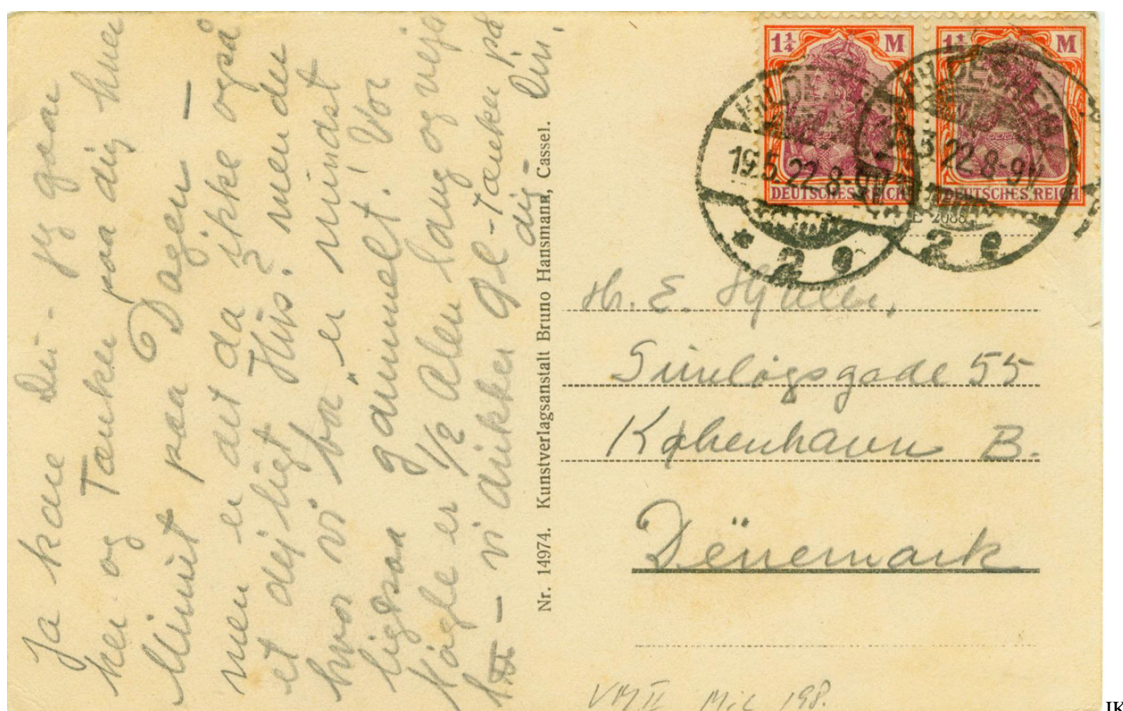 Ja kære Du - jeg gaar
her og Tænker paa dig hver
Minut paa Dagen -
men er det da ikke også
et dejligt Hus? men du
hvor vi bor" er mindst
ligesaa gammelt! Vor
Nøgle er ½ Alen lang og vejer
- vi drikker Øl - Tænker på
dig - Din.
Nr. 14974. Kunstverlagsanstalt Bruno Hansmann, Cassel.
1¼ M
DEUTSCHES REICH
1¼ M
DEUTSCHES REICH
HILDESHEIM
19.5.22.8-9V
* 2 g
HILDESHEIM
5.22.8-9V
* 2 g
Hr. E.
55
København B.
Dënemark
VM II Mic 198.